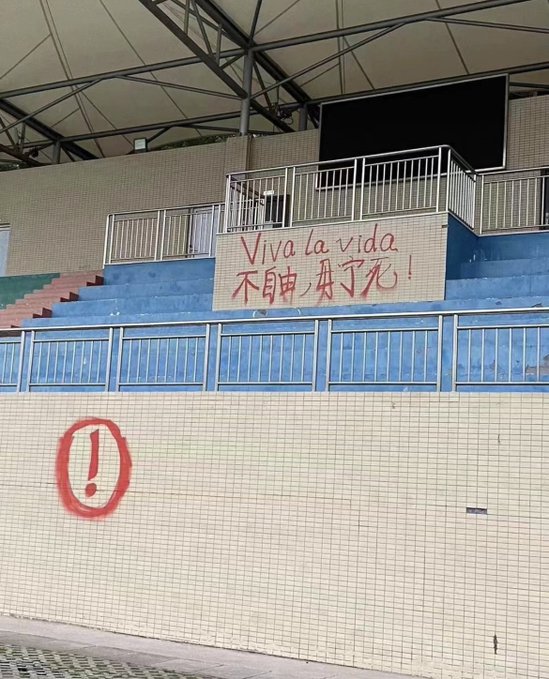 Viva la vida
不自由,毋宁死!
!